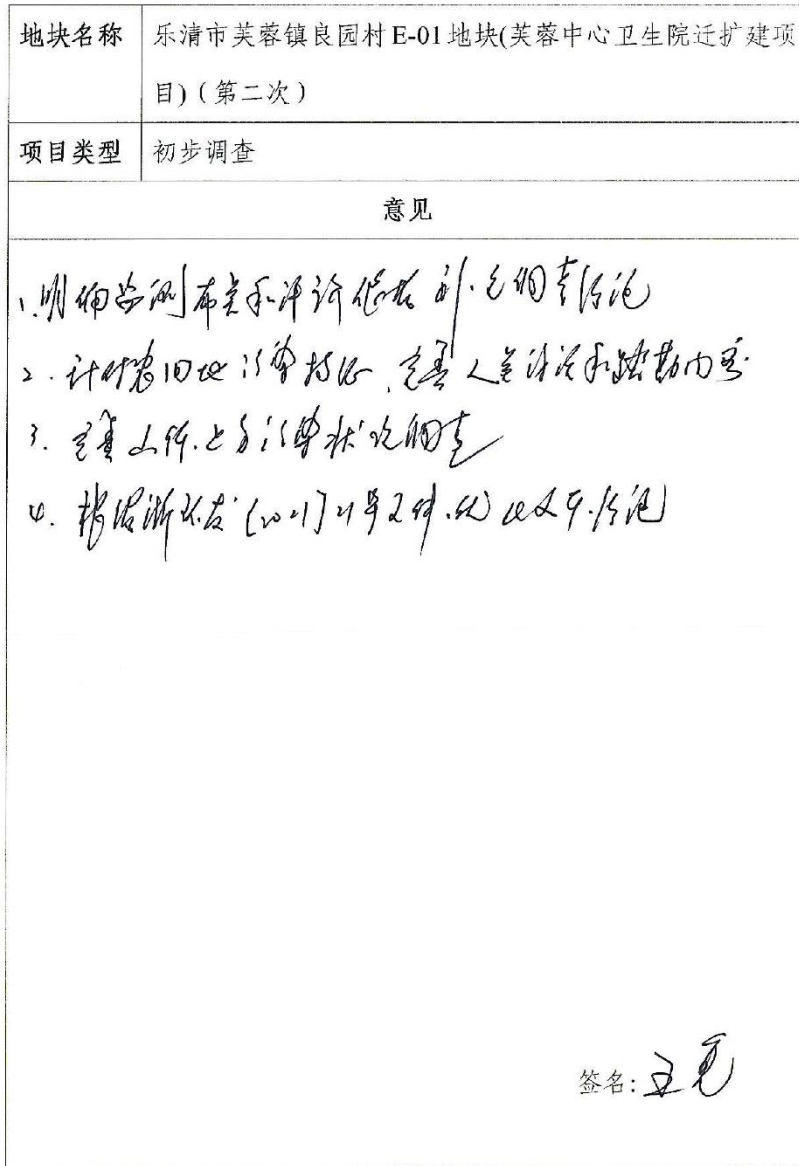 地块名称 乐清市芙蓉镇良园村E-01地块(芙蓉中心卫生院迁扩建项
目)（第二次）
项目类型 初步调查
意见
1.明确监测布点和评价依据 补充调查结论
2.针对农田地污染特征、完善人员访谈和踏勘内容
3.完善 污染状况调查
4.根据浙环发[2021]21号文件.优化 结论
签名: